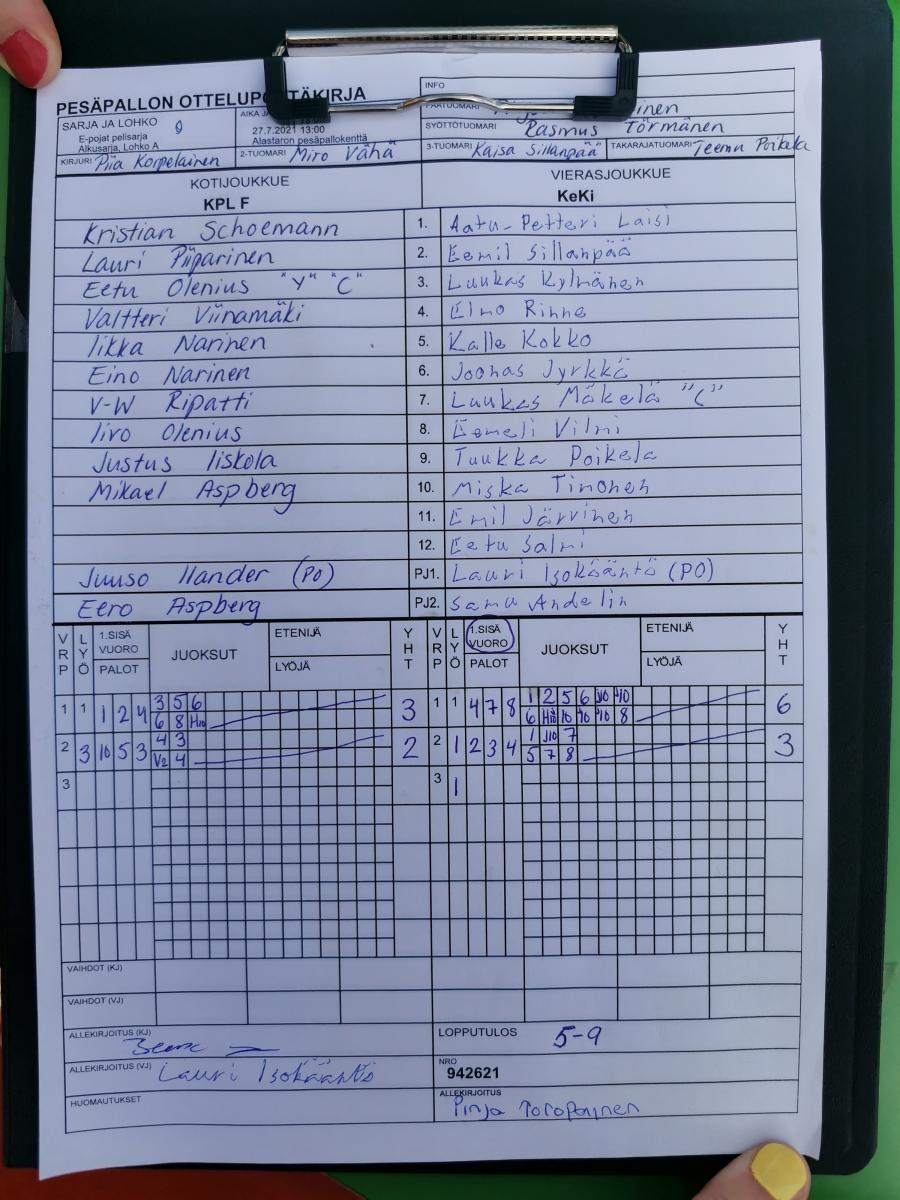 PESÄPALLON OTTELUPÖYTÄKIRJA
INFO
SARJA JA LOHKO
E-pojat pelisarja
Alkusarja, Lohko A
AIKA JA
27.7.2021 13:00
Alastaron pesäpallokenttä
PÄÄTUOMARI
SYÖTTÖTUOMARI Rasmus Törmänen
KIRJURI Piia Korpelainen
2-TUOMARI Miro Vähä
3-TUOMARI Kaisa Sillanpää
TAKARAJATUOMARI Teemu Poikela
KOTIJOUKKUE VIERASJOUKKUE
KPL F KeKi
Kristian Schoemann 1. Aatu-Petteri Laisi
Lauri Piiparinen 2. Eemil Sillanpää
Eetu Olenius "Y" "C" 3. Luukas Kylmänen
Valtteri Viinamäki 4. Elmo Rinne
Iikka Narinen 5. Kalle Kokko
Eino Narinen 6. Joonas Jyrkkä
V-W Ripatti 7. Luukas Mäkelä "C"
Iiro Olenius 8. Eemeli Vilmi
Justus Iiskola 9. Tuukka Poikela
Mikael Aspberg 10. Miska Timonen
11. Emil Järvinen
12. Eetu Salmi
Juuso Ilander (PO) PJ1. Lauri Isokääntö (PO)
Eero Aspberg PJ2. Samu Andelin
VRP LYÖ 1.SISÄ VUORO PALOT JUOKSUT ETENIJÄ LYÖJÄ YHT VRP LYÖ 1.SISÄ VUORO PALOT JUOKSUT ETENIJÄ LYÖJÄ YHT
1 1 1 2 4 3 5 6 3 1 1 4 7 8 1 2 5 6 J10 10 6
6 8 H10 6 H10 10 10 10 8
2 3 10 5 3 4 3 2 2 1 2 3 4 1 J10 7 3
V2 4 5 7 8
3 3 1
VAIHDOT (KJ)
VAIHDOT (VJ)
ALLEKIRJOITUS (KJ)
LOPPUTULOS 5-9
ALLEKIRJOITUS (VJ) Lauri Isokääntö
NRO
942621
HUOMAUTUKSET
ALLEKIRJOITUS
Pinja Toropainen